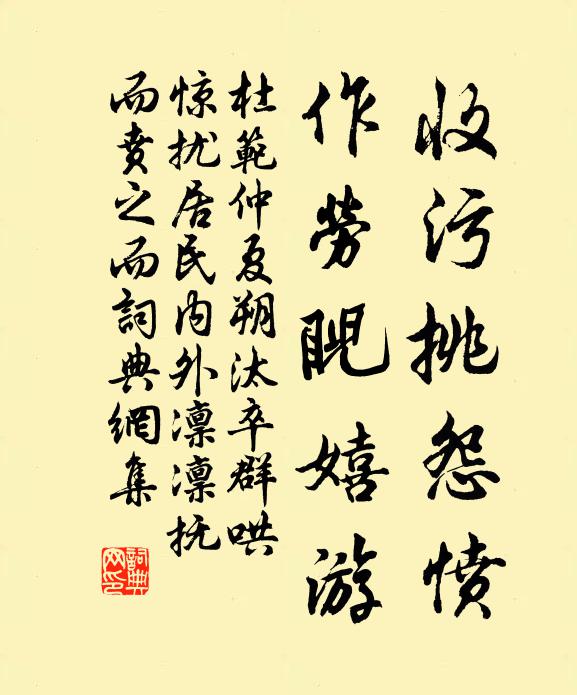 收污挑怨愤
作劳睨嬉游
杜範仲夏朔汰卒群哄
惊扰居民内外凛凛抚
而賁之而詞典網集
詞典网印